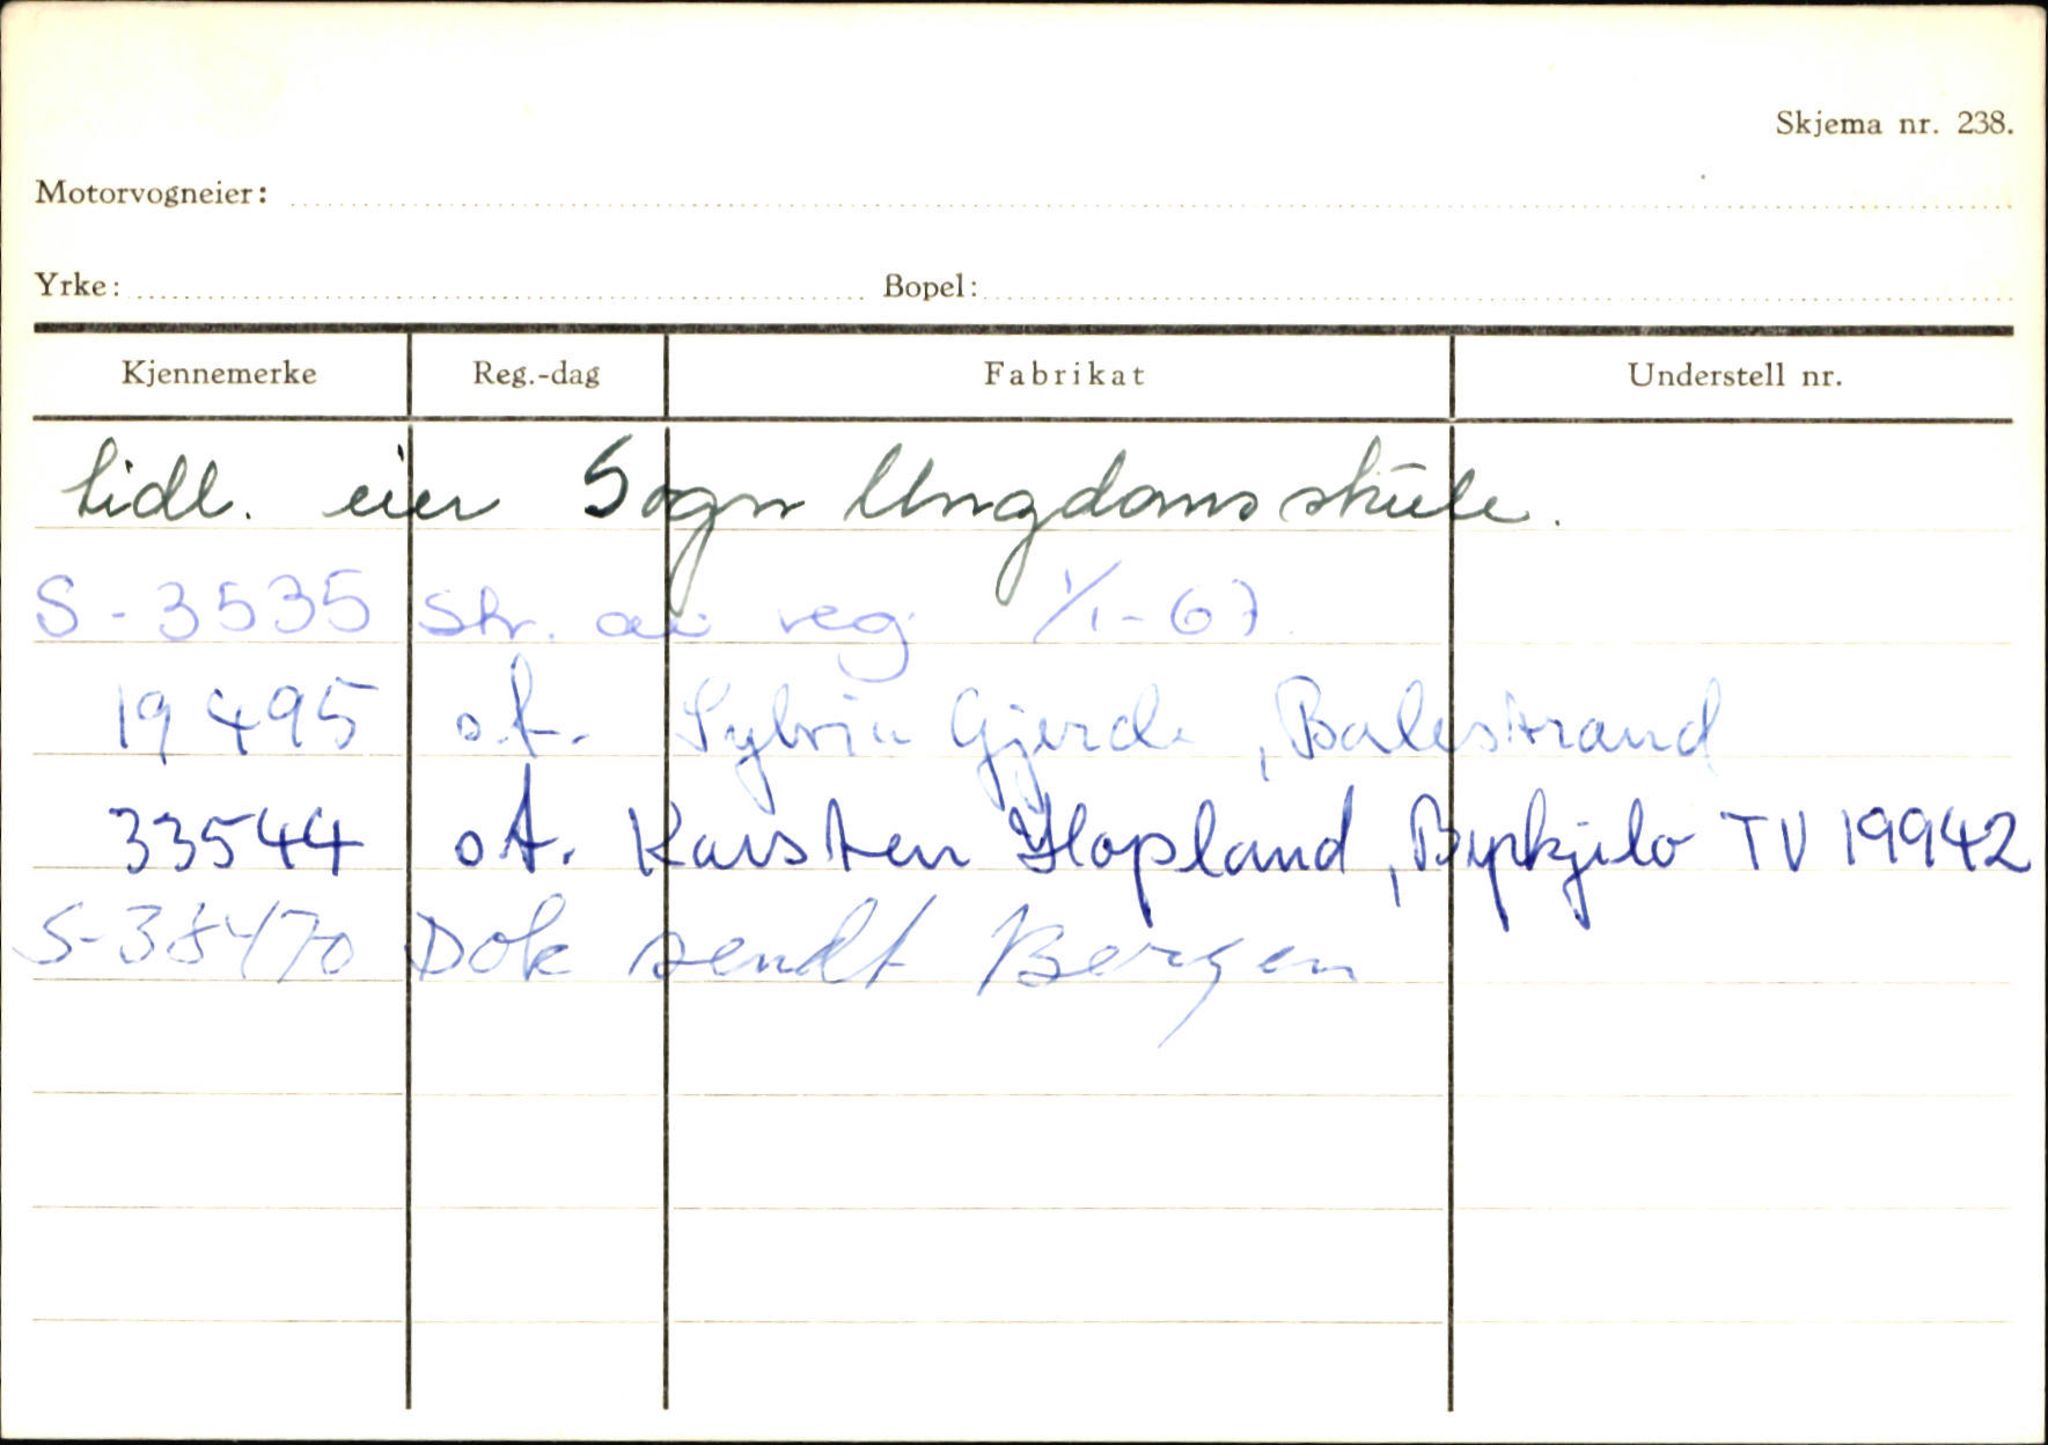 Skjema nr. 238.
Motorvogneier:
Yrke: Bopel:
Kjennemerke Reg.-dag Fabrikat Understell nr.
tidl. eier Sogn Ungdomsskule.
S-3535 Str. av reg 1/1-67.
19495 o.f. Sylvia Gjerde, Balestrand
33544 o.f. Karsten Hopland, Byrkjelo TV 19942
Dok sendt Bergen